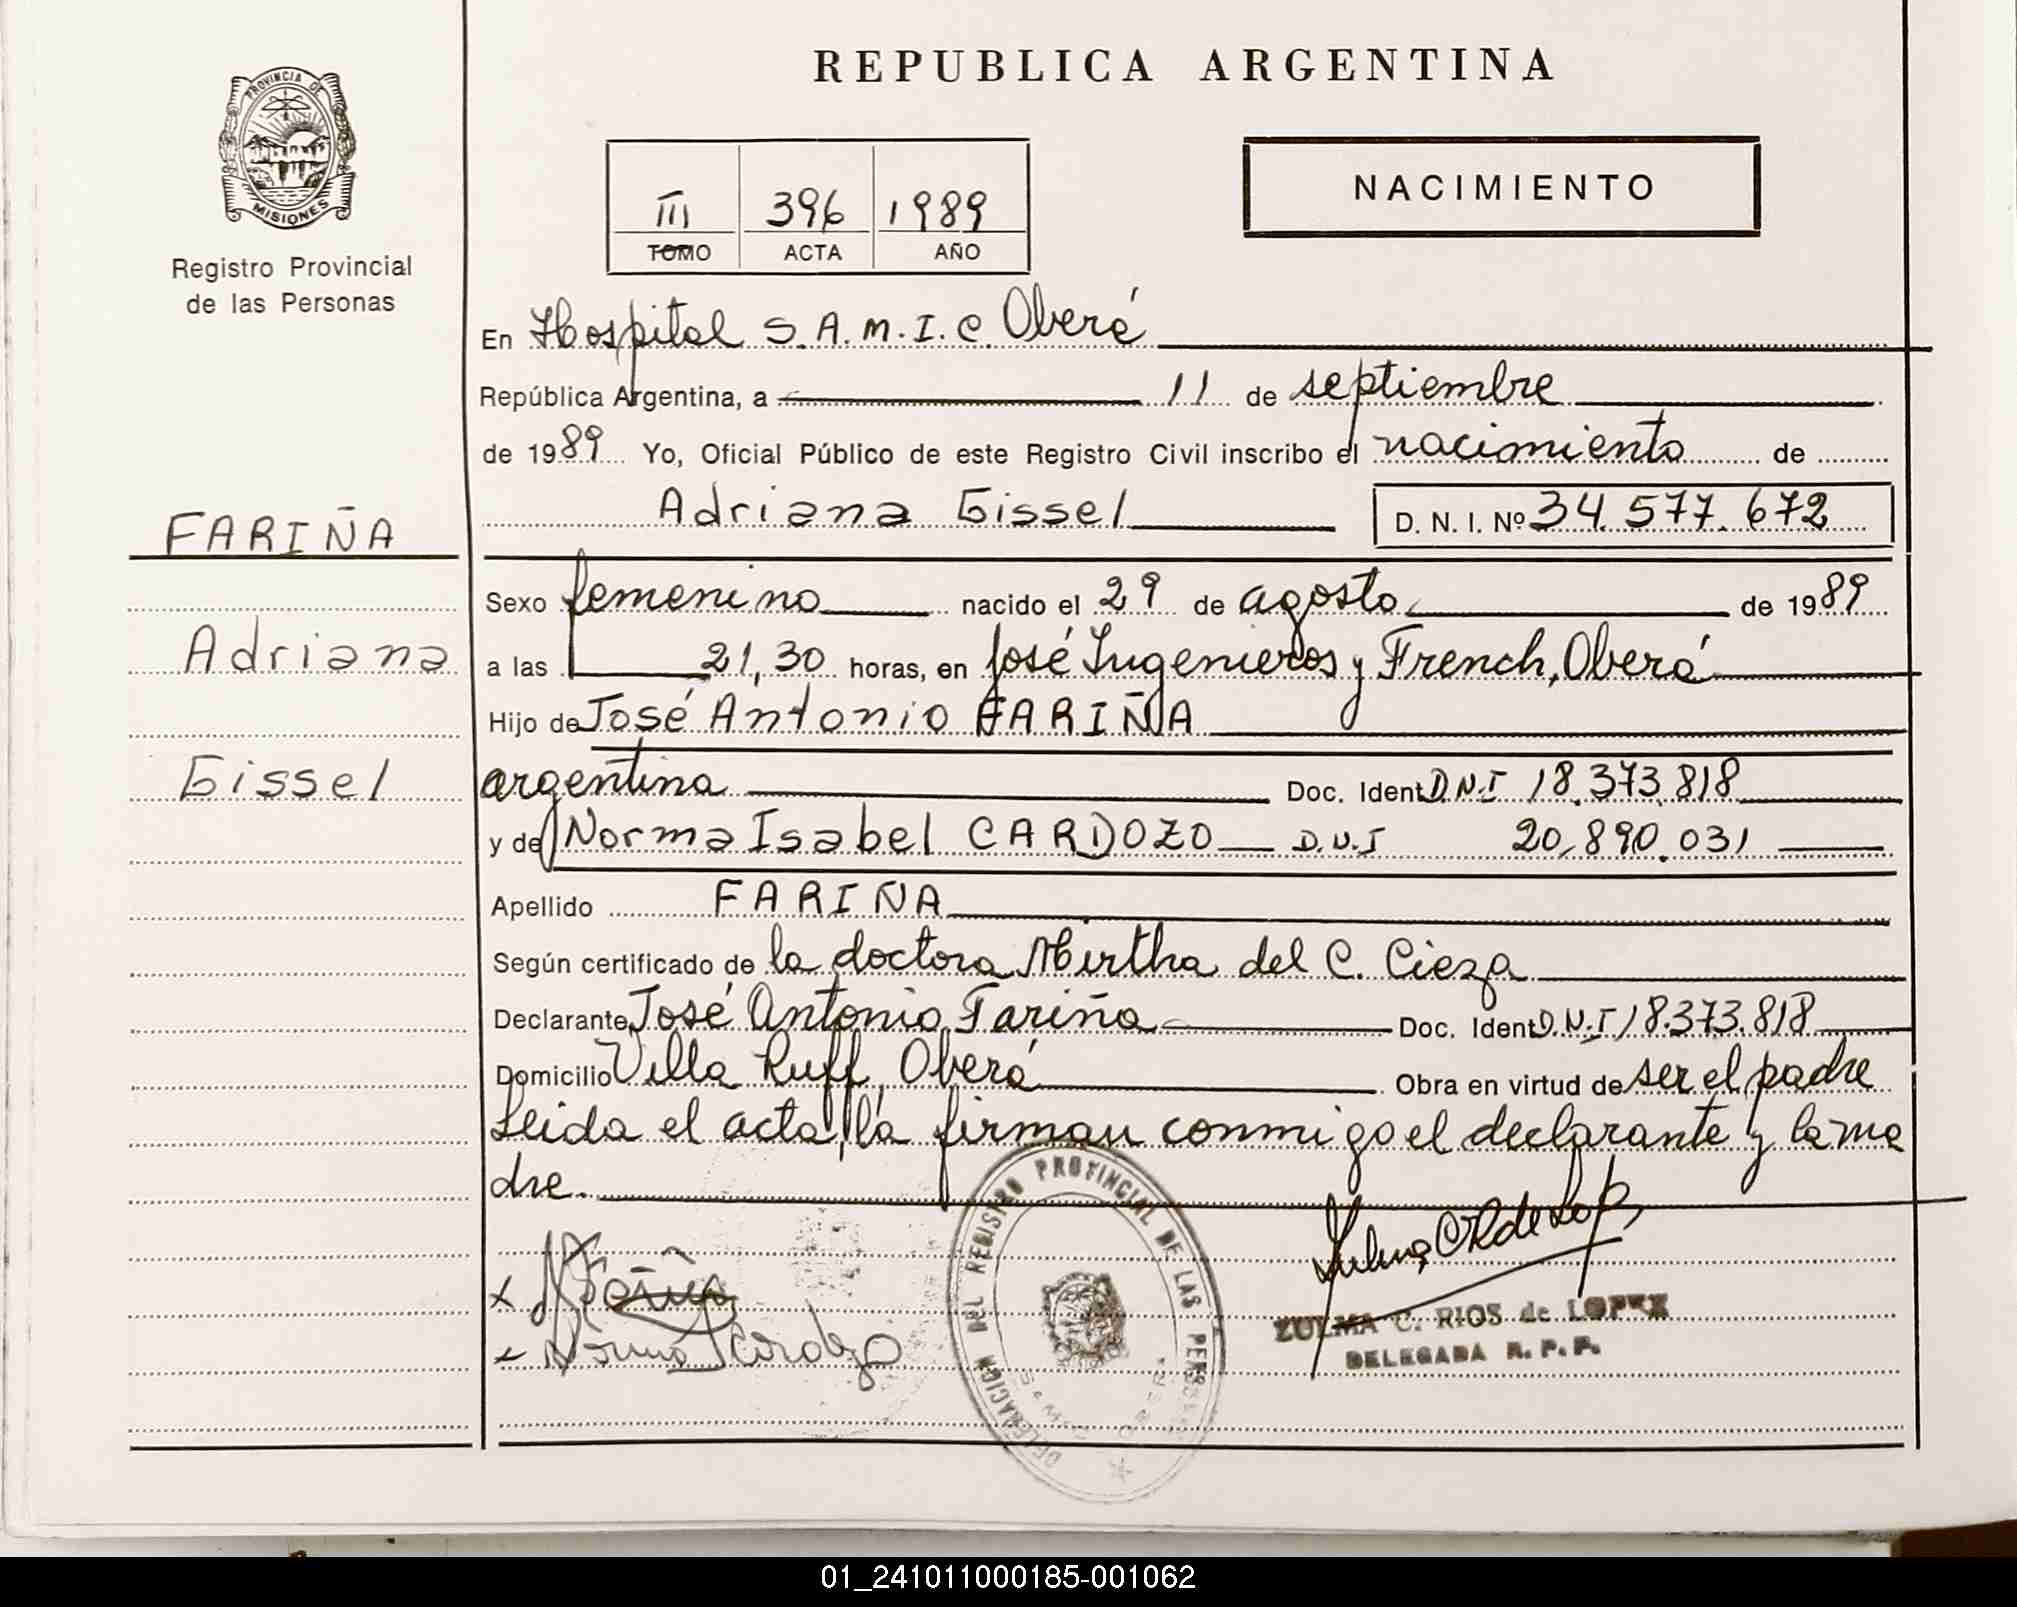 REPUBLICA ARGENTINA
PROVINCIA DE
MISIONES
Registro Provincial
de las Personas
III 396 1989
TOMO ACTA AÑO
NACIMIENTO
En Hospital S.A.M.I.C. Oberá
República Argentina, a 11 de septiembre
de 1989 Yo, Oficial Público de este Registro Civil inscribo el nacimiento de
Adriana Gissel D. N. I. Nº 34.577.672
FARIÑA
Adriana
Gissel
Sexo femenino nacido el 29 de agosto de 1989
a las 21,30 horas, en José Ingenieros y French, Oberá
Hijo de José Antonio FARIÑA
argentina Doc. Ident D.N.I 18.373.818
y de Norma Isabel CARDOZO D.N.I 20.890.031
Apellido FARIÑA
Según certificado de la doctora Mirtha del C. Cieza
Declarante José Antonio Fariña Doc. Ident D.N.I 18.373.818
Domicilio Villa Ruff, Oberá Obra en virtud de ser el padre
Leida el acta, la firman conmigo el declarante y la ma
dre.
x Fariña
x Norma Cardozo
DELEGACION DEL REGISTRO PROVINCIAL DE LAS PERSONAS
Zulma C R de Lopez
ZULMA C. RIOS de LOPEZ
DELEGADA R. P. P.
01_241011000185-001062